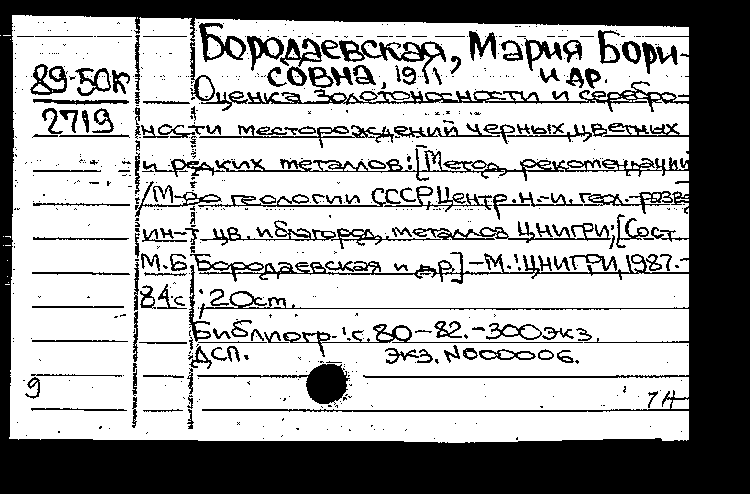 Бородаевская, Мария Бори-
89-50К
совна, 1911 и др.
Оценка золотоносности и серебро-
2719
ности месторождений черных, цветных
и редких металлов: [Метод. рекомендации
/М-во геологии СССР, Центр. н.-и. геол.-разве
ин-т цв. и благород. металлов ЦНИГРИ; [Сост.
М.Б Бородаевская и др.] -М.: ЦНИГРИ, 1987.-
84с ; 20 см.
Библиогр.: с. 80-82. -300 экз.
ДСП. экз. N000006.
9